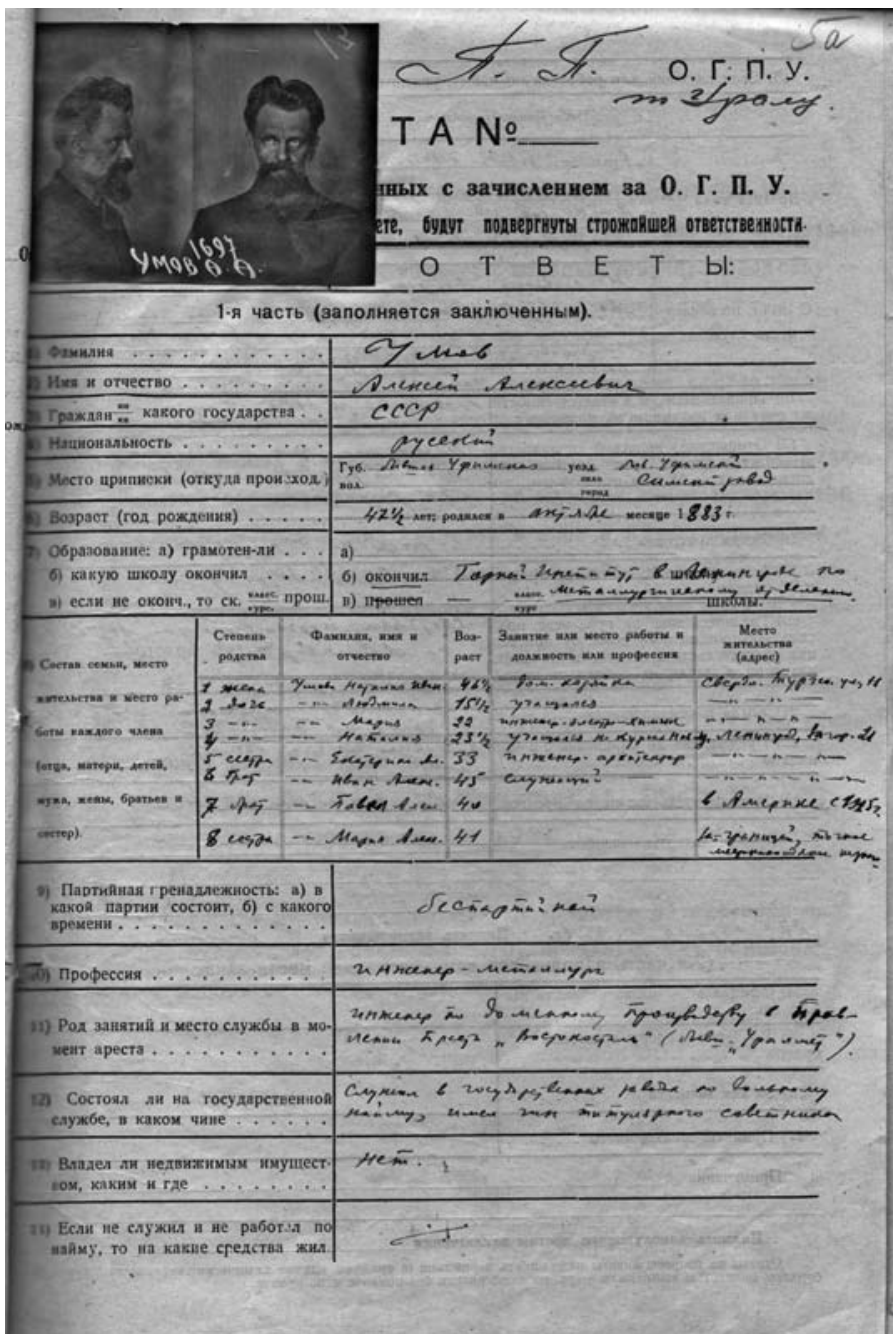 5а
13
П. П. О. Г. П. У.
по Уралу.
ТА №
нных с зачислением за О. Г. П. У.
ете, будут подвергнуты строжайшей ответственности.
1697
УМОВ А. А.
О Т В Е Т Ы:
1-я часть (заполняется заключенным).
Фамилия Умов
Имя и отчество Алексей Алексеевич
Граждан ин ка какого государства СССР
Национальность русский
Место приписки (откуда происход.) Губ. Уфимская уезд Уфимской
вол. село город Симский завод
Возраст (год рождения) 47½ лет; родился в октябре месяце 1883 г.
7) Образование: а) грамотен-ли а)
б) какую школу окончил б) окончил Горный Институт в Ленинграде по
в) если не оконч., то ск. класс. курс. прош. в) прошел — класс. курс Металлургическому отделению школы.
Состав семьи, место жительства и место работы каждого члена (отца, матери, детей, мужа, жены, братьев и сестер).
Степень родства Фамилия, имя и отчество Возраст Занятие или место работы и должность или профессия Место жительства (адрес)
1 жена Умова Наталия Иван. 46½ дом. хозяйка Свердл.
2 дочь -"- Людмила 15½ учащаяся -"-
3 -"- -"- Мария 22 инженер-электро-химик -"-
4 -"- -"- Наталия 23½ учащаяся Ленинград,
5 сестра -"- Екатерина Ал. 33 инженер-архитектор -"-
6 брат -"- Иван Алек. 45 служащий -"-
7 брат -"- Павел Алек. 40 в Америке с
8 сестра -"- Мария Алек. 41 За-границей, точное
9) Партийная принадлежность: а) в какой партии состоит, б) с какого времени беспартийный
10) Профессия инженер-металлург
11) Род занятий и место службы в момент ареста инженер по доменному производству в Правлении Треста „Востокосталь“ („Уралмет“).
12) Состоял ли на государственной службе, в каком чине Служил в государственных заводах по вольному найму, имел чин титулярного советника
Владел ли недвижимым имуществом, каким и где нет.
Если не служил и не работал по найму, то на какие средства жил